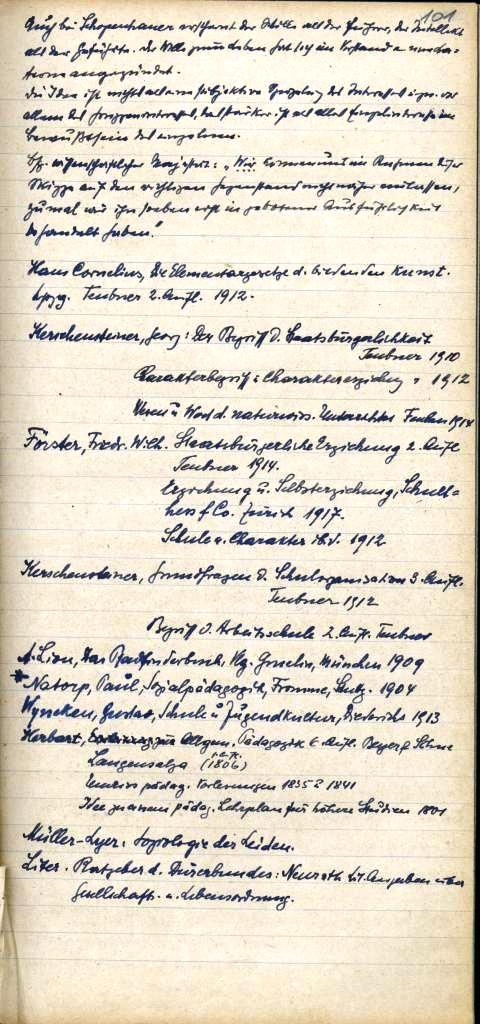 101
Auch bei Schopenhauer erscheint der Wille als der Führer, der Intellekt
als der Geführte. Der Wille zum Leben hat sich im Verstand eine
angezündet.
Die Idee ist nicht allein subjektive Spiegelung des Interesses
allem des Gruppeninteresses, das stärker ist als alles
Bewußtsein des einzelnen.
wissenschaftlicher Majestät: „Wir können uns im Rahmen dieser
Skizze auf den wichtigen Gegenstand nicht näher einlassen,
zumal wir ihn soeben erst in gebotener Ausführlichkeit
behandelt haben."
Hans Cornelius, Die Elementargesetze d. bildenden Kunst.
Lpzg. Teubner 2. Aufl. 1912.
Kerschensteiner, Georg: Der Begriff d. Staatsbürgerlichkeit
Teubner 1910
Charakterbegriff u. Charaktererziehung " 1912
Wesen u. Wert d. naturwiss. Unterrichtes Teubner 1914
Förster, Friedr. Wilh. Staatsbürgerliche Erziehung 2. Aufl
Teubner 1914.
Erziehung u. Selbsterziehung, Schult-
hess & Co. Zürich 1917.
Schule u. Charakter ibid. 1912
Kerschensteiner, Grundfragen d. Schulorganisation 3. Aufl.
Teubner 1912
Begriff d. Arbeitsschule 2. Aufl. Teubner
A. Lion, Das Padfinderbuch, Vlg. Gmelin, München 1909
* Natorp, Paul, Sozialpädagogik, Fromme, Stutg. 1904
Wyneken, Gustav, Schule u. Jugendkultur, Diederichs 1913
Herbart, Allgem. Pädagogik 6. Aufl. Beyer &
Langensalza (1806)
Umriss pädag. Vorlesungen 1835 1841
Idee zu einem pädag. Lehrplan für höhere Studien 1801
Müller-Lyer: Soziologie der Leiden.
Liter. Ratgeber d. Dürerbundes: Neurath Lit. Angaben über
Gesellschafts- u. Lebensordnung.